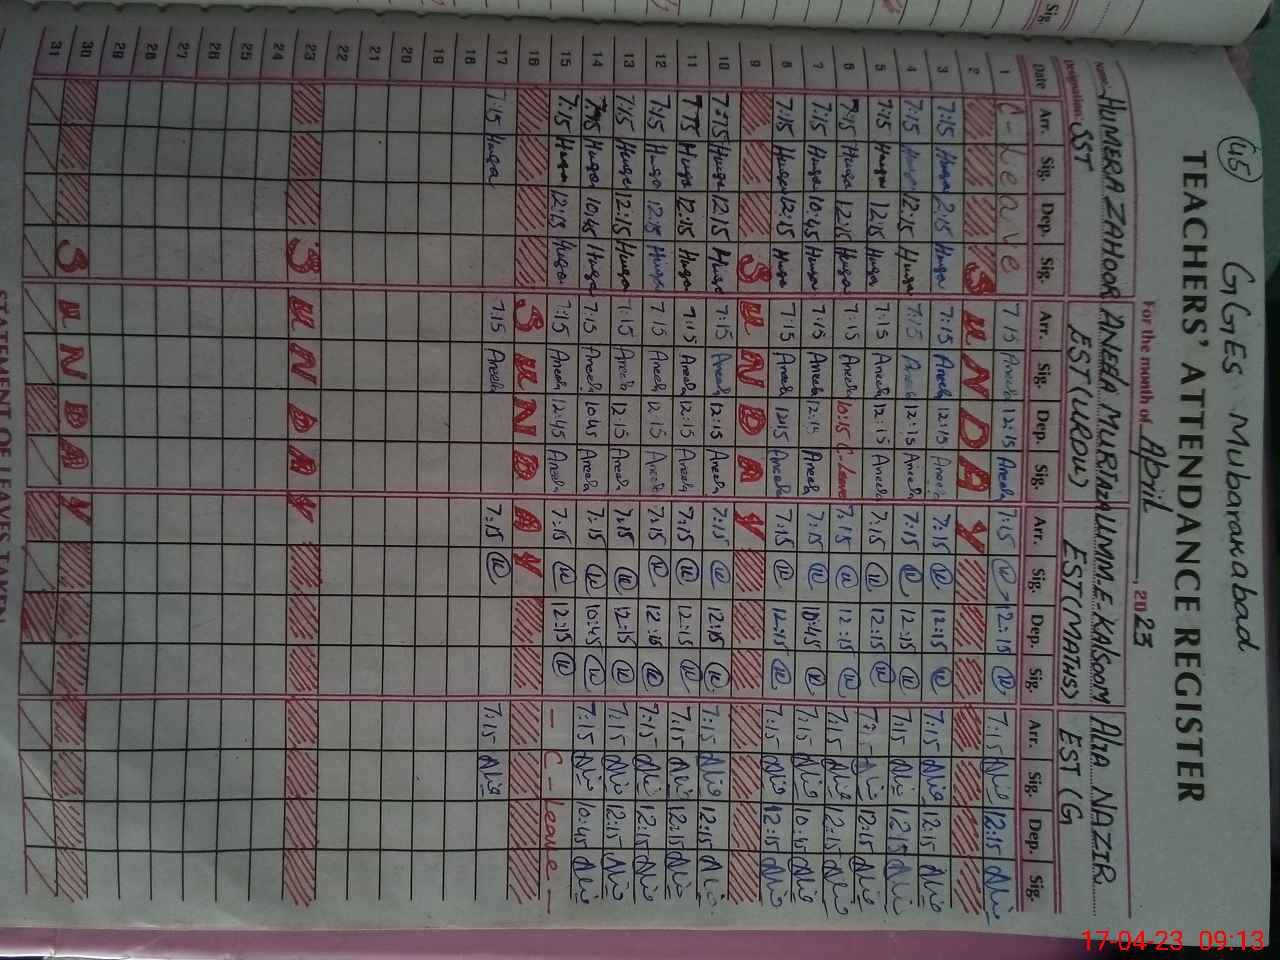 45
GGES Mubarakabad
TEACHERS' ATTENDANCE REGISTER
For the month of April, 2023
Name: HUMERA ZAHOOR ANEELA MURTAZA UMM-E-KALSOOM Alia NAZIR
Designation: SST EST (URDU) EST (MATHS) EST (G
Date Arr. Sig. Dep. Sig. Arr. Sig. Dep. Sig. Arr. Sig. Dep. Sig. Arr. Sig. Dep. Sig.
1 C-Leave 7:15 Aneela 12:15 Aneela 7:15 12:15 7:15 Alia 12:15 Alia
2 SUNDAY
3 7:15 Huga 2:15 Huga 7:15 Aneela 12:15 Aneela 7:15 12:15 7:15 Alia 12:15 Alia
4 7:15 Huga 12:15 Huga 7:15 Aneela 12:15 Aneela 7:15 12:15 7:15 Alia 12:15 Alia
5 7:15 Huga 12:15 Huga 7:15 Aneela 12:15 Aneela 7:15 12:15 7:15 Alia 12:15 Alia
6 7:15 Huga 12:15 Huga 7:15 Aneela 10:15 C-Leave 7:15 12:15 7:15 Alia 12:15 Alia
7 7:15 Huga 10:45 Huga 7:15 Aneela 12:15 Aneela 7:15 10:45 7:15 Alia 10:45 Alia
8 7:15 Huga 12:15 Huga 7:15 Aneela 12:15 Aneela 7:15 12:15 7:15 Alia 12:15 Alia
9 SUNDAY
10 7:15 Huga 12:15 Huga 7:15 Aneela 12:15 Aneela 7:15 12:15 7:15 Alia 12:15 Alia
11 7:15 Huga 12:15 Huga 7:15 Aneela 12:15 Aneela 7:15 12:15 7:15 Alia 12:15 Alia
12 7:15 Huga 12:15 Huga 7:15 Aneela 12:15 Aneela 7:15 12:15 7:15 Alia 12:15 Alia
13 7:15 Huga 12:15 Huga 7:15 Aneela 12:15 Aneela 7:15 12:15 7:15 Alia 12:15 Alia
14 7:15 Huga 10:45 Huga 7:15 Aneela 10:45 Aneela 7:15 10:45 7:15 Alia 10:45 Alia
15 7:15 Huga 12:15 Huga 7:15 Aneela 12:45 Aneela 7:15 12:15 - C-Leave -
16 SUNDAY
17 7:15 Huga 7:15 Aneela 7:15 7:15 Alia
18
19
20
21
22
23 SUNDAY
24
25
26
27
28
29
30 SUNDAY
31
STATEMENT OF LEAVES TAKEN
Sig.
17-04-23 09:13